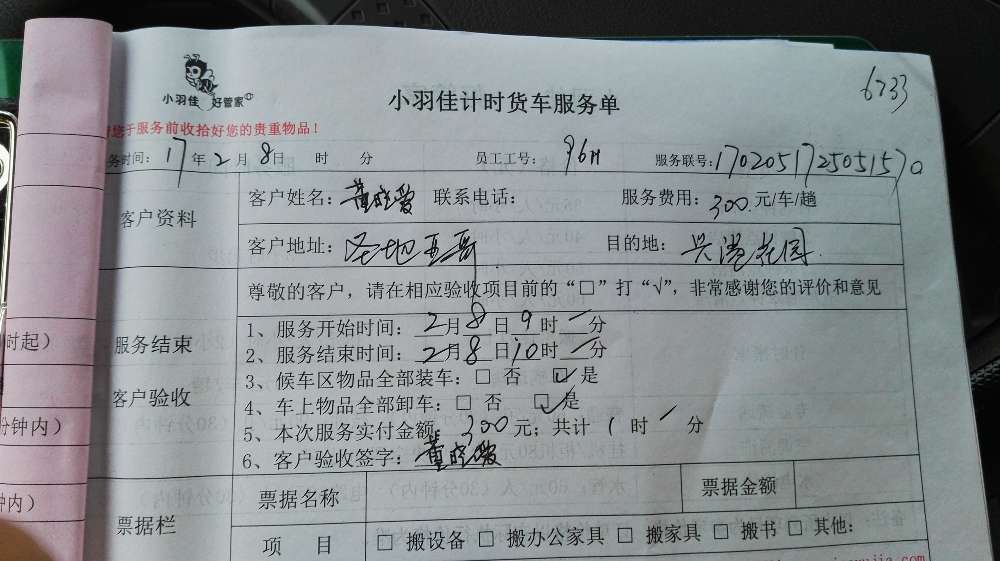 6233
小羽佳 好管家
小羽佳计时货车服务单
于服务前收拾好您的贵重物品!
务时间: 17年2月8日 时 分 员工工号: 96H 服务联号: 1702051725051570
客户资料
客户姓名: 董 爱 联系电话: 服务费用: 300.元/车/趟
客户地址: 圣地亚哥 目的地: 兴港花园
尊敬的客户，请在相应验收项目前的“□”打“√”，非常感谢您的评价和意见
服务结束
客户验收
1、服务开始时间: 2月8日9时一分
2、服务结束时间: 2月8日10时一分
3、候车区物品全部装车: □ 否 ☑ 是
4、车上物品全部卸车: □ 否 ☑ 是
5、本次服务实付金额: 300元; 共计 1 时 一 分
6、客户验收签字: 董 爱
票据栏
票据名称 票据金额
项 目 □ 搬设备 □ 搬办公家具 □ 搬家具 □ 搬书 □ 其他:
时起）
分钟内）
钟内）
jia.com